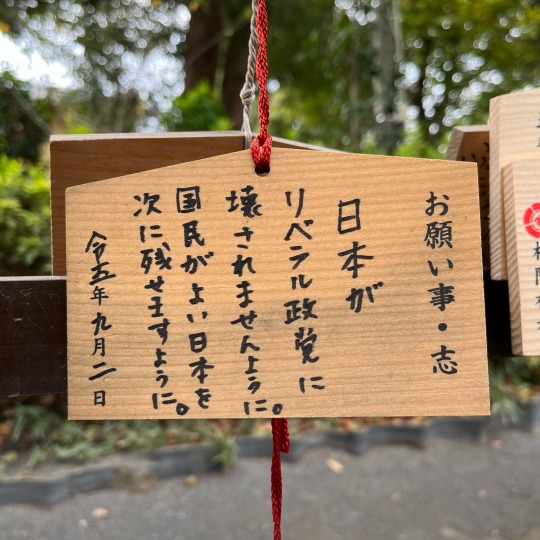 お願い事・志
日本が
リベラル政党に
壊されませんように。
国民がよい日本を
次に残せますように。
令五年九月二日